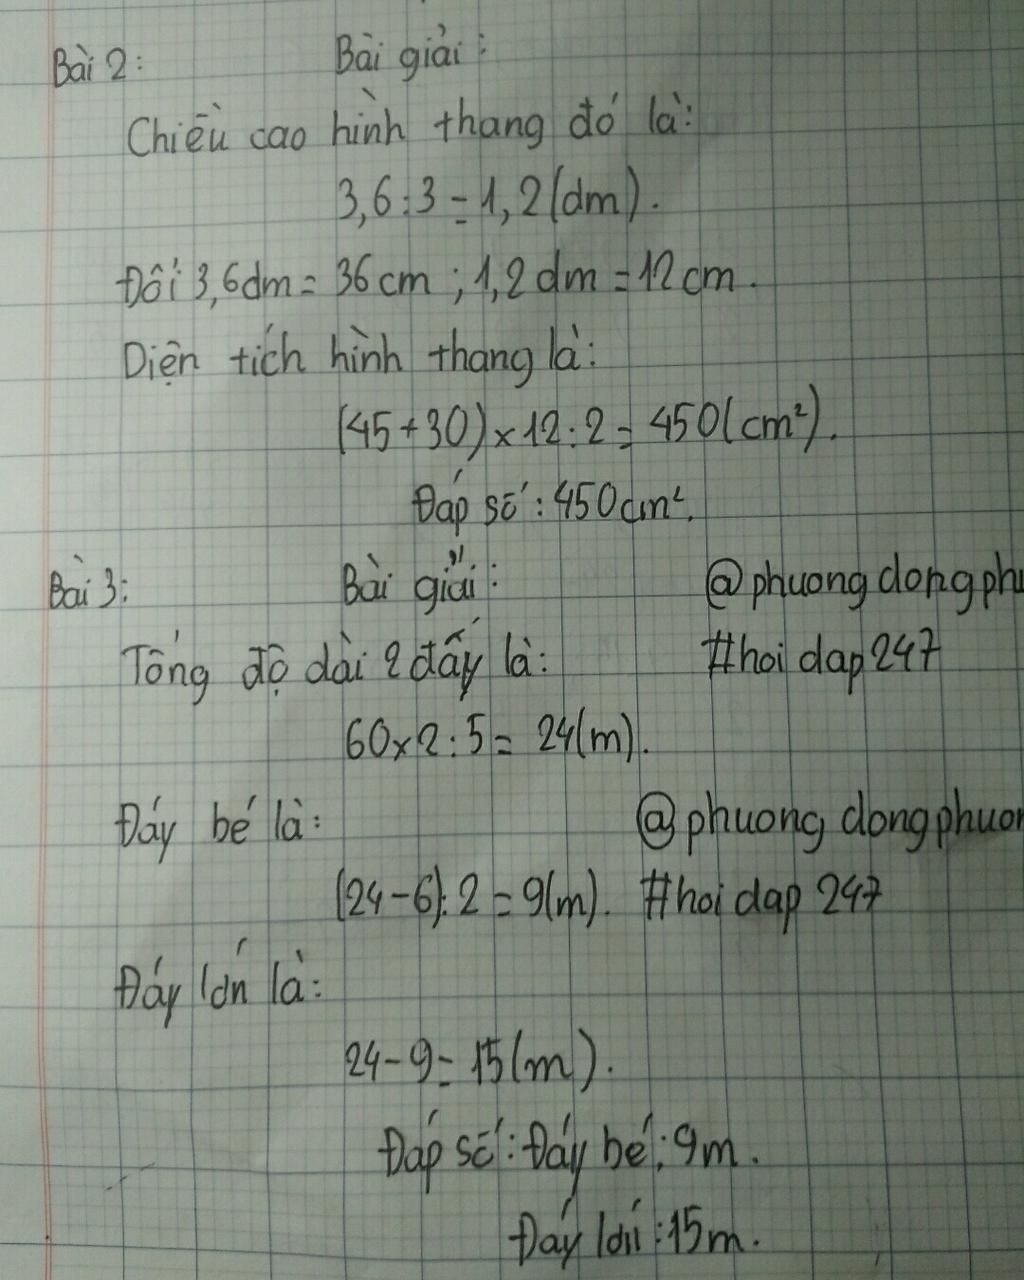 Bài 2: Bài giải:
Chiều cao hình thang đó là:
3,6 : 3 = 1,2 (dm).
Đổi 3,6 dm = 36 cm ; 1,2 dm = 12 cm.
Diện tích hình thang là:
(45 + 30) x 12 : 2 = 450 (cm²).
Đáp số : 450 cm².
Bài 3: Bài giải: @phuongdongphu
Tổng độ dài 2 đấy là: #hoidap247
60 x 2 : 5 = 24 (m).
Đáy bé là: @phuongdongphuon
(24 - 6) : 2 = 9 (m). #hoidap247
Đáy lớn là:
24 - 9 = 15 (m).
Đáp số : Đáy bé : 9 m.
Đáy lớn : 15 m.